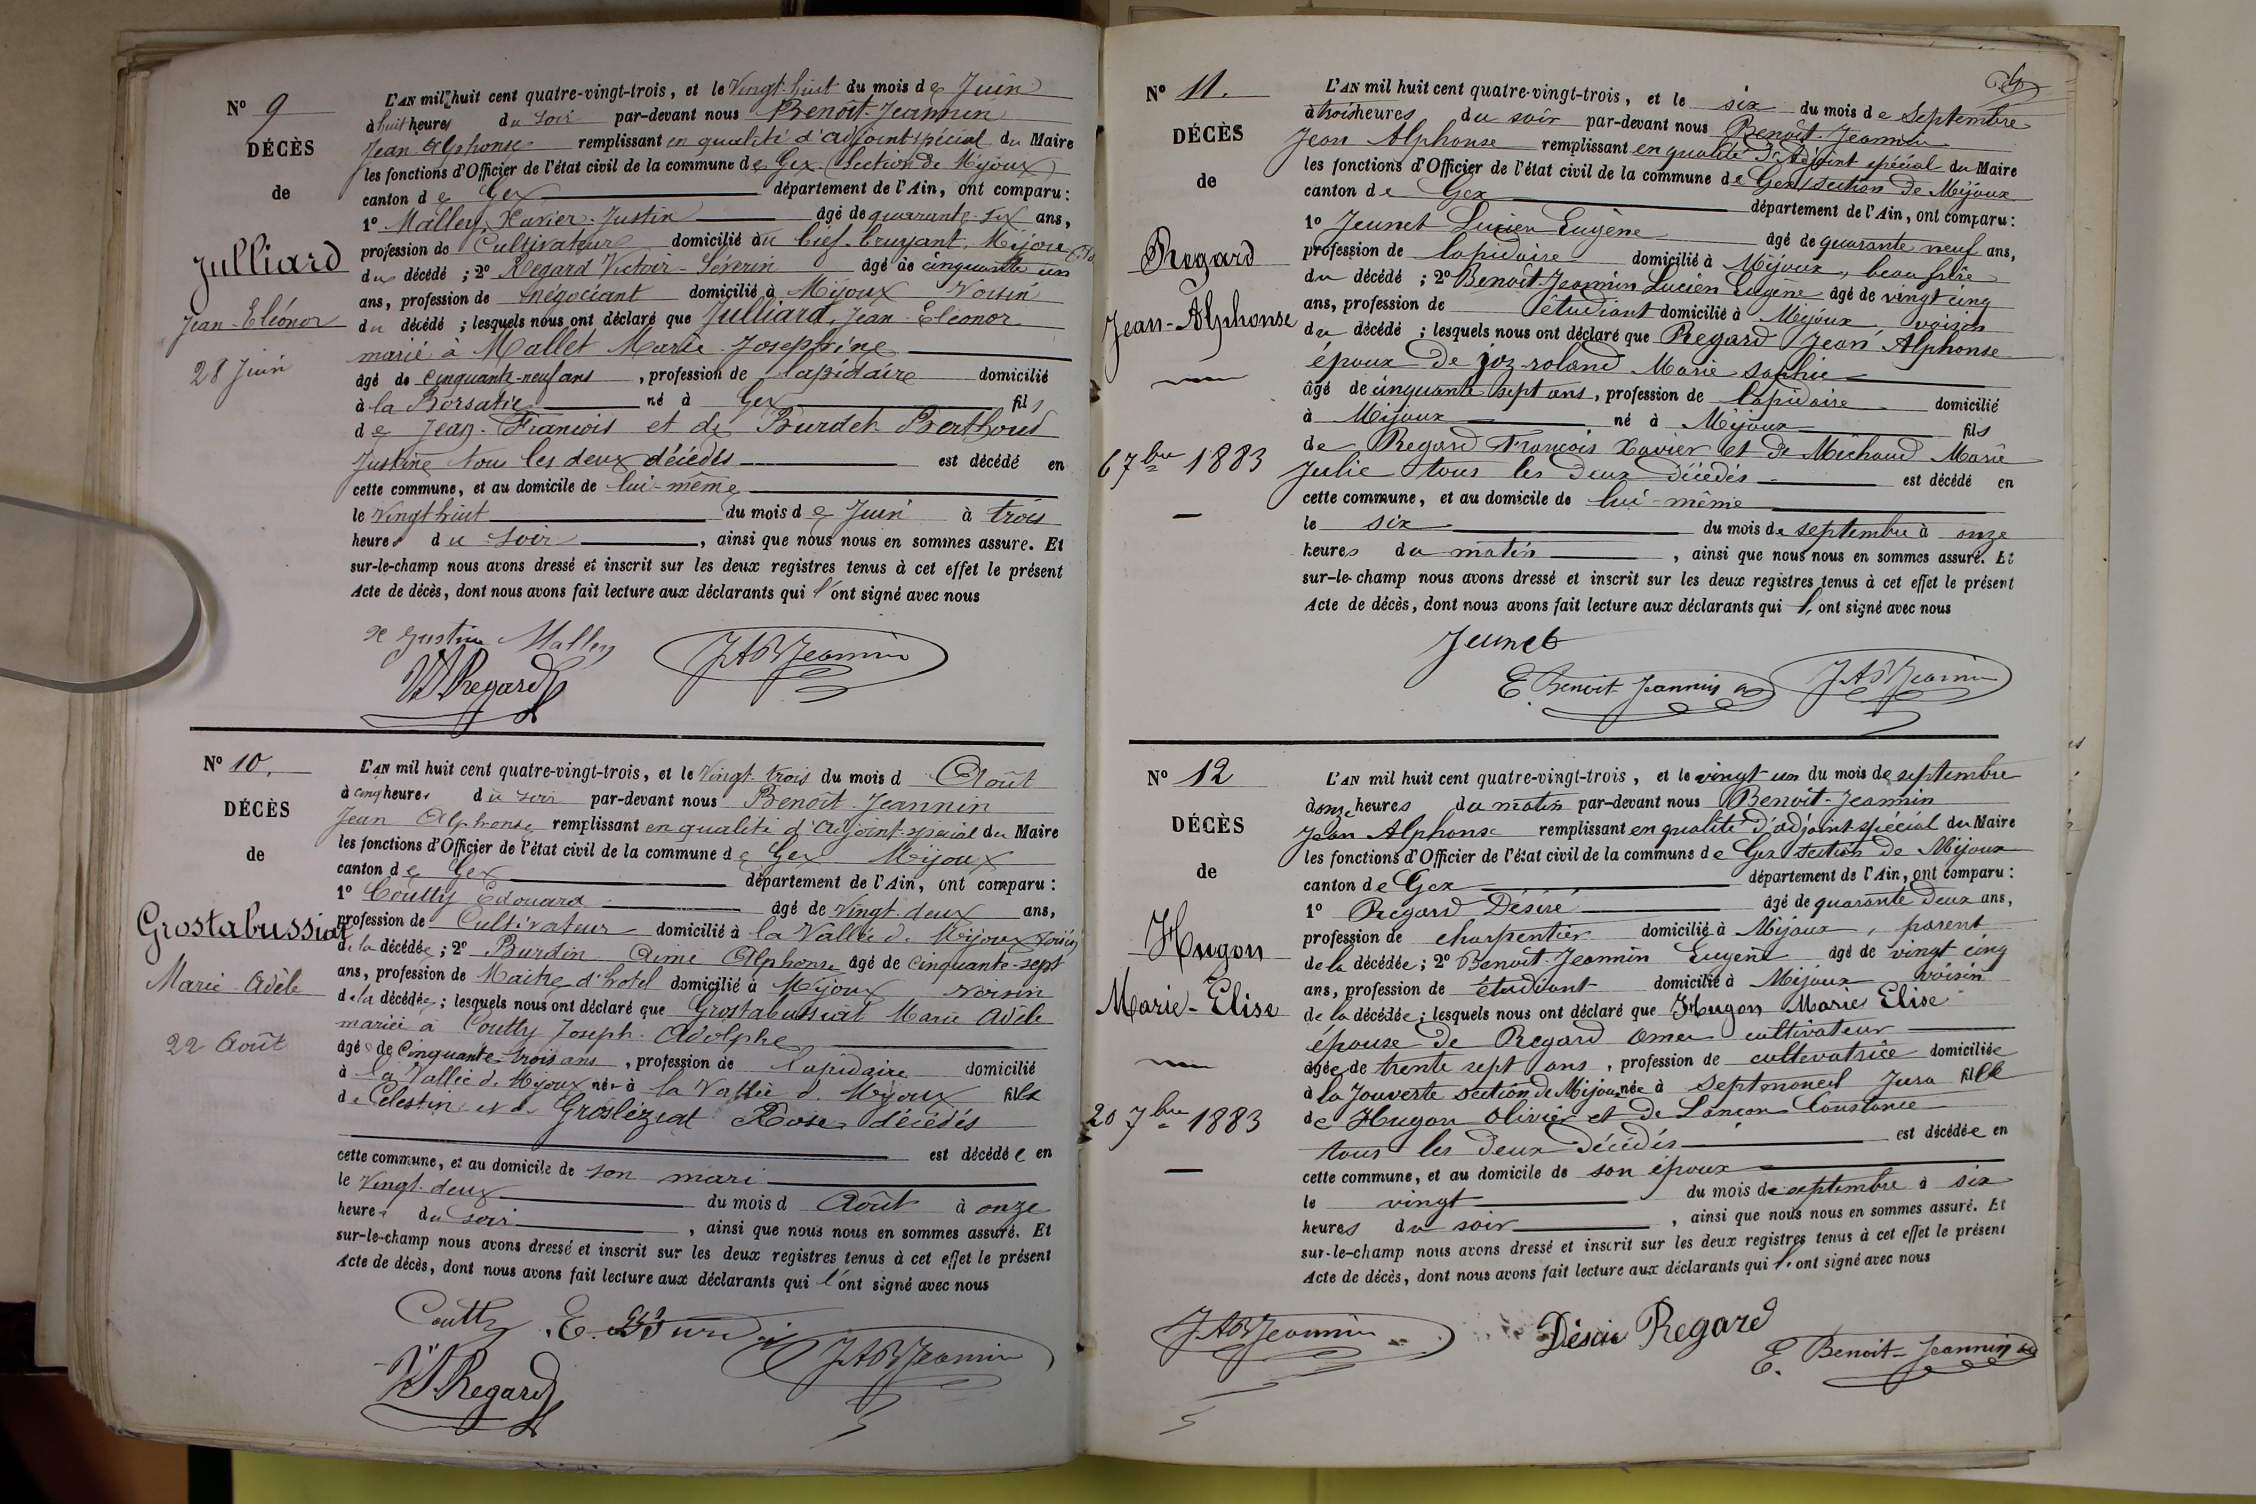 N° 9
DÉCÈS
de
Julliard
Jean-Eléonor
28 Juin
L'AN mil huit cent quatre-vingt-trois, et le Vingt-huit du mois de Juin
à huit heures du soir par-devant nous Benoît-Jeannin
Jean Alphonse remplissant en qualité d'adjoint spécial du Maire
les fonctions d'Officier de l'état civil de la commune de Gex (Section de Mijoux)
canton de Gex département de l'Ain, ont comparu :
1° Malley, Xavier-Justin âgé de quarante-six ans,
profession de Cultivateur domicilié au bief-bruyant, Mijoux
du décédé ; 2° Regard Victoir-Séverin âgé de cinquante un
ans, profession de négociant domicilié à Mijoux Voisin
du décédé ; lesquels nous ont déclaré que Julliard, Jean-Eléonor
marié à Mallet Marie-Josephine
âgé de cinquante-neuf ans, profession de lapidaire domicilié
à la Borsatie né à Gex fils
de Jean-Francois et de Burdet Berthoud
Justine tous les deux décédés est décédé en
cette commune, et au domicile de lui-même
le Vingt huit du mois de Juin à trois
heures du soir, ainsi que nous nous en sommes assuré. Et
sur-le-champ nous avons dressé et inscrit sur les deux registres tenus à cet effet le présent
Acte de décès, dont nous avons fait lecture aux déclarants qui l'ont signé avec nous
X Justin Malley
JAB Jeannin
VS Regard
N° 10.
DÉCÈS
de
Grostabussiat
Marie-Adèle
22 Août
L'AN mil huit cent quatre-vingt-trois, et le Vingt-trois du mois d Août
à cinq heures du soir par-devant nous Benoît-Jeannin
Jean Alphonse remplissant en qualité d'adjoint-spécial du Maire
les fonctions d'Officier de l'état civil de la commune de Gex Mijoux
canton de Gex département de l'Ain, ont comparu :
1° Coutty Edouard âgé de vingt-deux ans,
profession de Cultivateur domicilié à la Vallée de Mijoux voisin
de la décédée ; 2° Burdin Aimé Alphonse âgé de cinquante-sept
ans, profession de Maitre d'hotel domicilié à Mijoux voisin
de la décédée ; lesquels nous ont déclaré que Grostabussiat Marie Adèle
mariée à Coutty Joseph-Adolphe
âgée de cinquante-trois ans, profession de lapidaire domicilié
à la Vallée de Mijoux née à la Vallée de Mijoux fille
de Célestin et de Grosléziat Rose, décédés
est décédée en
cette commune, et au domicile de son mari
le Vingt-deux du mois d Août à onze
heures du soir, ainsi que nous nous en sommes assuré. Et
sur-le-champ nous avons dressé et inscrit sur les deux registres tenus à cet effet le présent
Acte de décès, dont nous avons fait lecture aux déclarants qui l'ont signé avec nous
Coutty E. Burdin
JAB Jeannin
VS Regard
N° 11.
DÉCÈS
de
Regard
Jean-Alphonse
6 7bre 1883
L'AN mil huit cent quatre-vingt-trois, et le six du mois de Septembre
à trois heures du soir par-devant nous Benoît-Jeannin
Jean Alphonse remplissant en qualité d'Adjoint spécial du Maire
les fonctions d'Officier de l'état civil de la commune de Gex, section de Mijoux
canton de Gex département de l'Ain, ont comparu :
1° Jeunet Lucien Eugène âgé de quarante neuf ans,
profession de lapidaire domicilié à Mijoux, beau frère
du décédé ; 2° Benoît-Jeannin Lucien Eugène âgé de vingt cinq
ans, profession de étudiant domicilié à Mijoux, voisin
du décédé ; lesquels nous ont déclaré que Regard Jean Alphonse
époux de joz-roland Marie sophie
âgé de cinquante sept ans, profession de lapidaire domicilié
à Mijoux né à Mijoux fils
de Regard François Xavier et De Michaud Marie
Julie tous les deux décédés est décédé en
cette commune, et au domicile de lui-même
le six du mois de septembre à onze
heures du matin, ainsi que nous nous en sommes assuré. Et
sur-le-champ nous avons dressé et inscrit sur les deux registres tenus à cet effet le présent
Acte de décès, dont nous avons fait lecture aux déclarants qui l'ont signé avec nous
Jeunet
E. Benoit-Jeannin
JAB Jeannin
N° 12
DÉCÈS
de
Hugon
Marie-Elise
20 7bre 1883
L'AN mil huit cent quatre-vingt-trois, et le vingt un du mois de septembre
à onze heures du matin par-devant nous Benoît-Jeannin
Jean Alphonse remplissant en qualité d'adjoint spécial du Maire
les fonctions d'Officier de l'état civil de la commune de Gex section de Mijoux
canton de Gex département de l'Ain, ont comparu :
1° Regard Désiré âgé de quarante deux ans,
profession de charpentier domicilié à Mijoux, parent
de la décédée ; 2° Benoît-Jeannin Eugène âgé de vingt cinq
ans, profession de étudiant domicilié à Mijoux voisin
de la décédée ; lesquels nous ont déclaré que Hugon Marie Elise
épouse de Regard Omer cultivateur
âgée de trente sept ans, profession de cultivatrice domiciliée
à la Jouverte section de Mijoux née à Septmoncel Jura fille
de Hugon Olivier et de Lançon Constance
tous les deux décédés est décédée en
cette commune, et au domicile de son époux
le vingt du mois de septembre à six
heures du soir, ainsi que nous nous en sommes assuré. Et
sur-le-champ nous avons dressé et inscrit sur les deux registres tenus à cet effet le présent
Acte de décès, dont nous avons fait lecture aux déclarants qui l'ont signé avec nous
JAB Jeannin
Désiré Regard
E. Benoit-Jeannin